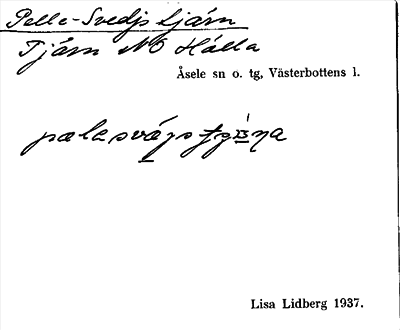 Pelle-Svedjs tjärn
Tjärn NO Hälla
Åsele sn o. tg, Västerbottens l.
Lisa Lidberg 1937.